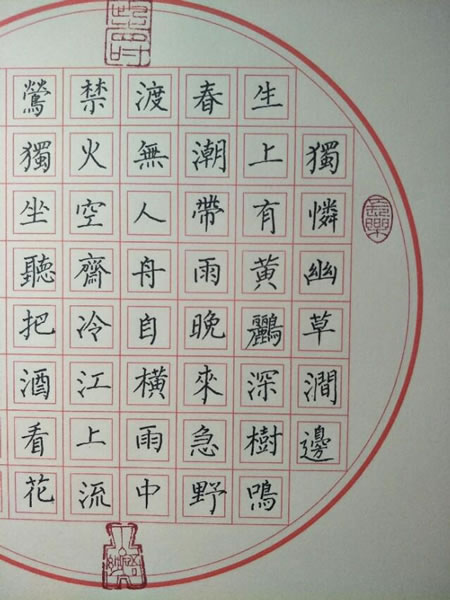 獨憐幽草澗邊
生上有黃鸝深樹鳴
春潮帶雨晚來急野
渡無人舟自橫雨中
禁火空齋冷江上流
鶯獨坐聽把酒看花